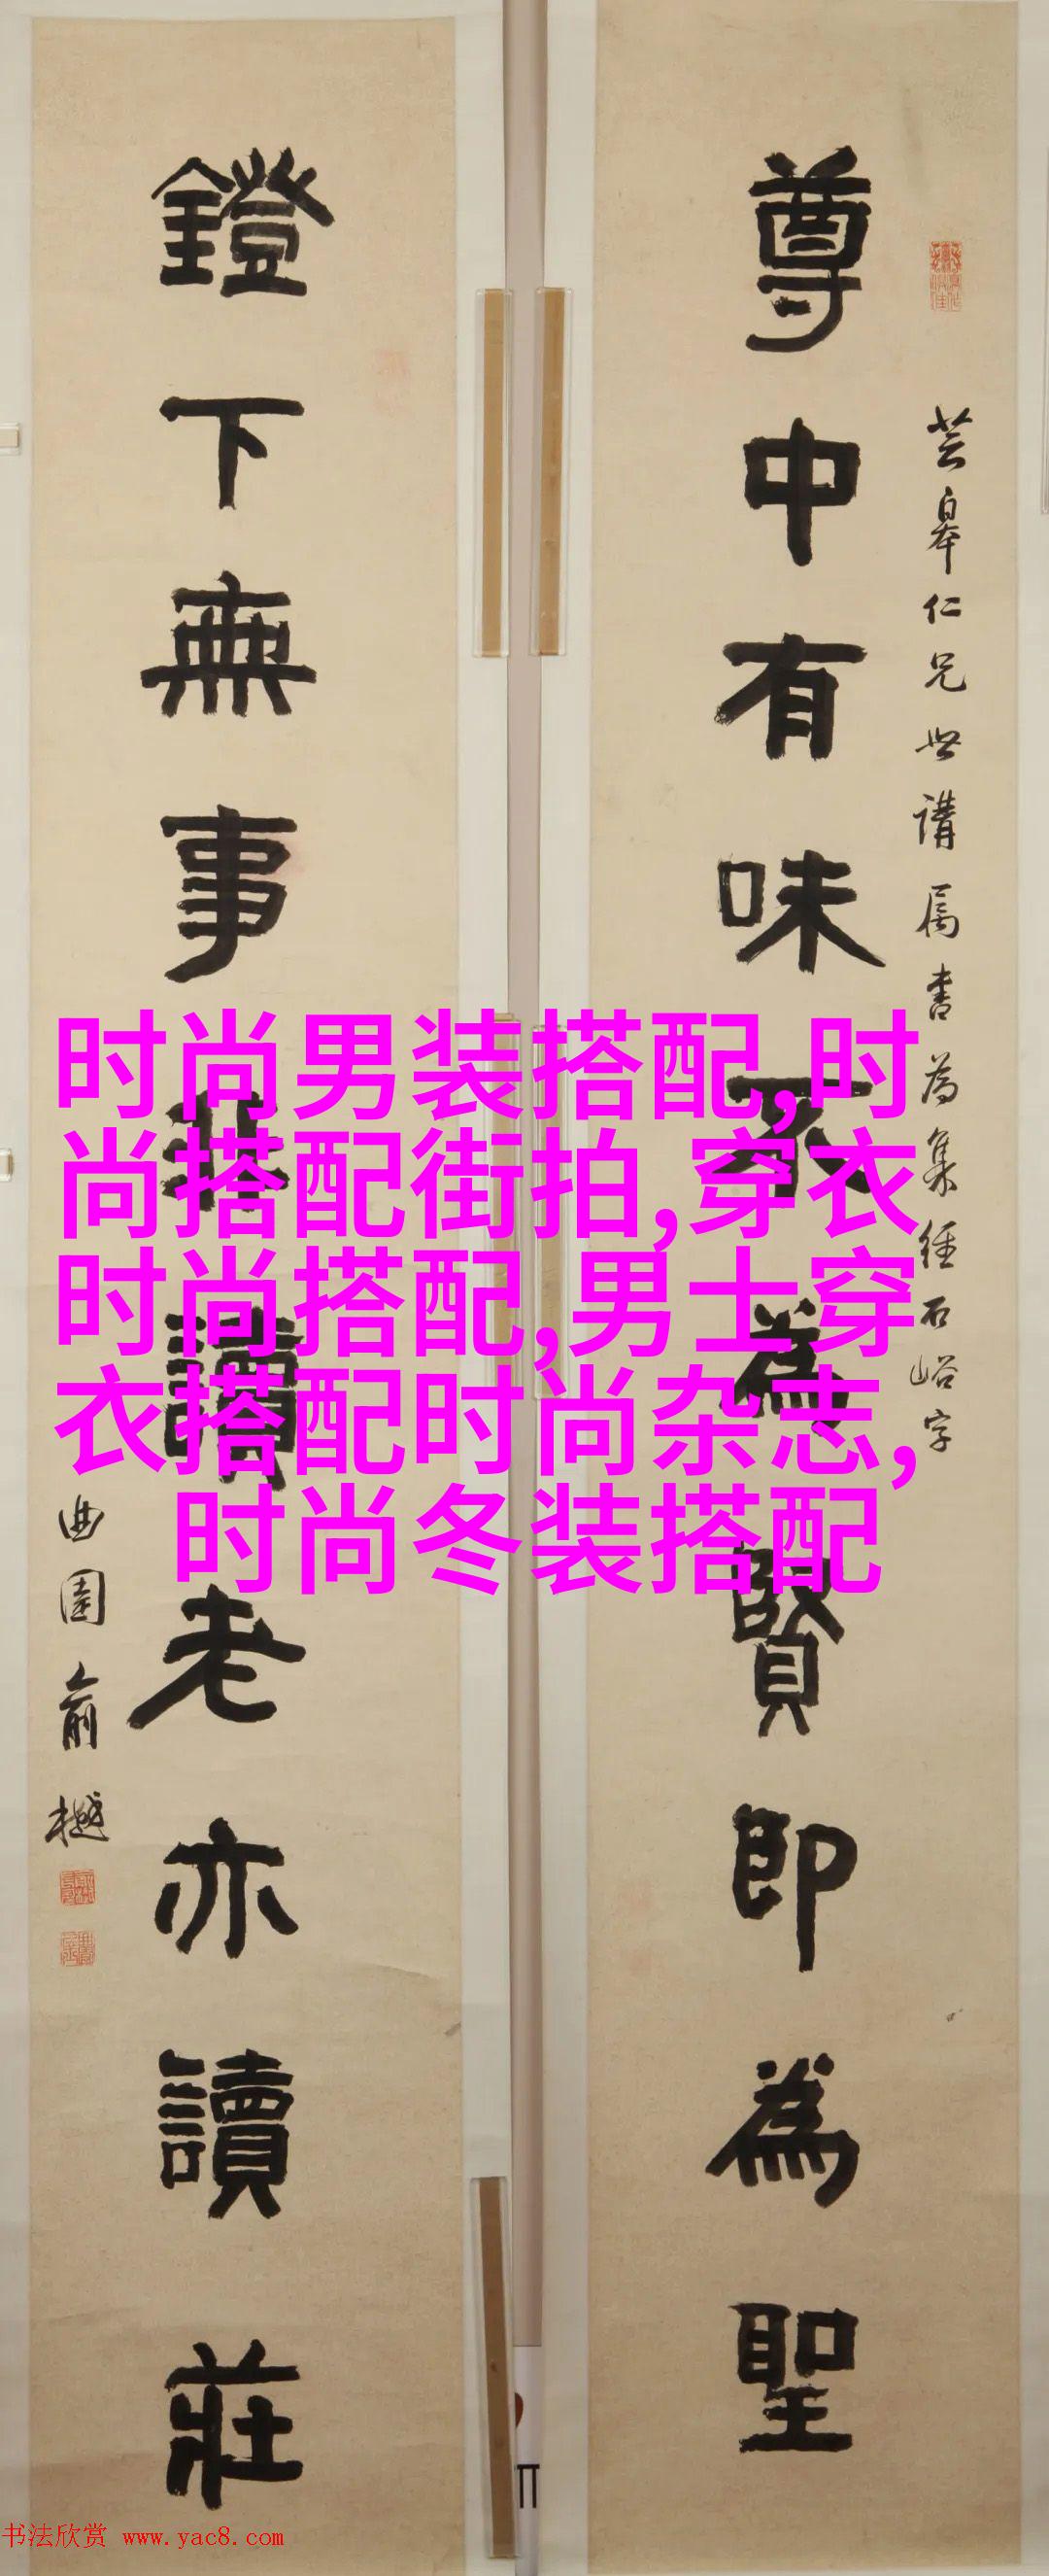 芸皋仁兄世講属書為集經石峪字
尊中有味不為賢即為聖
鐙下無事非讀老亦讀莊
曲園俞樾
时尚男装搭配,时
尚搭配街拍,穿衣
时尚搭配,男士穿
衣搭配时尚杂志,
时尚冬装搭配
书法欣赏 www.yac8.com